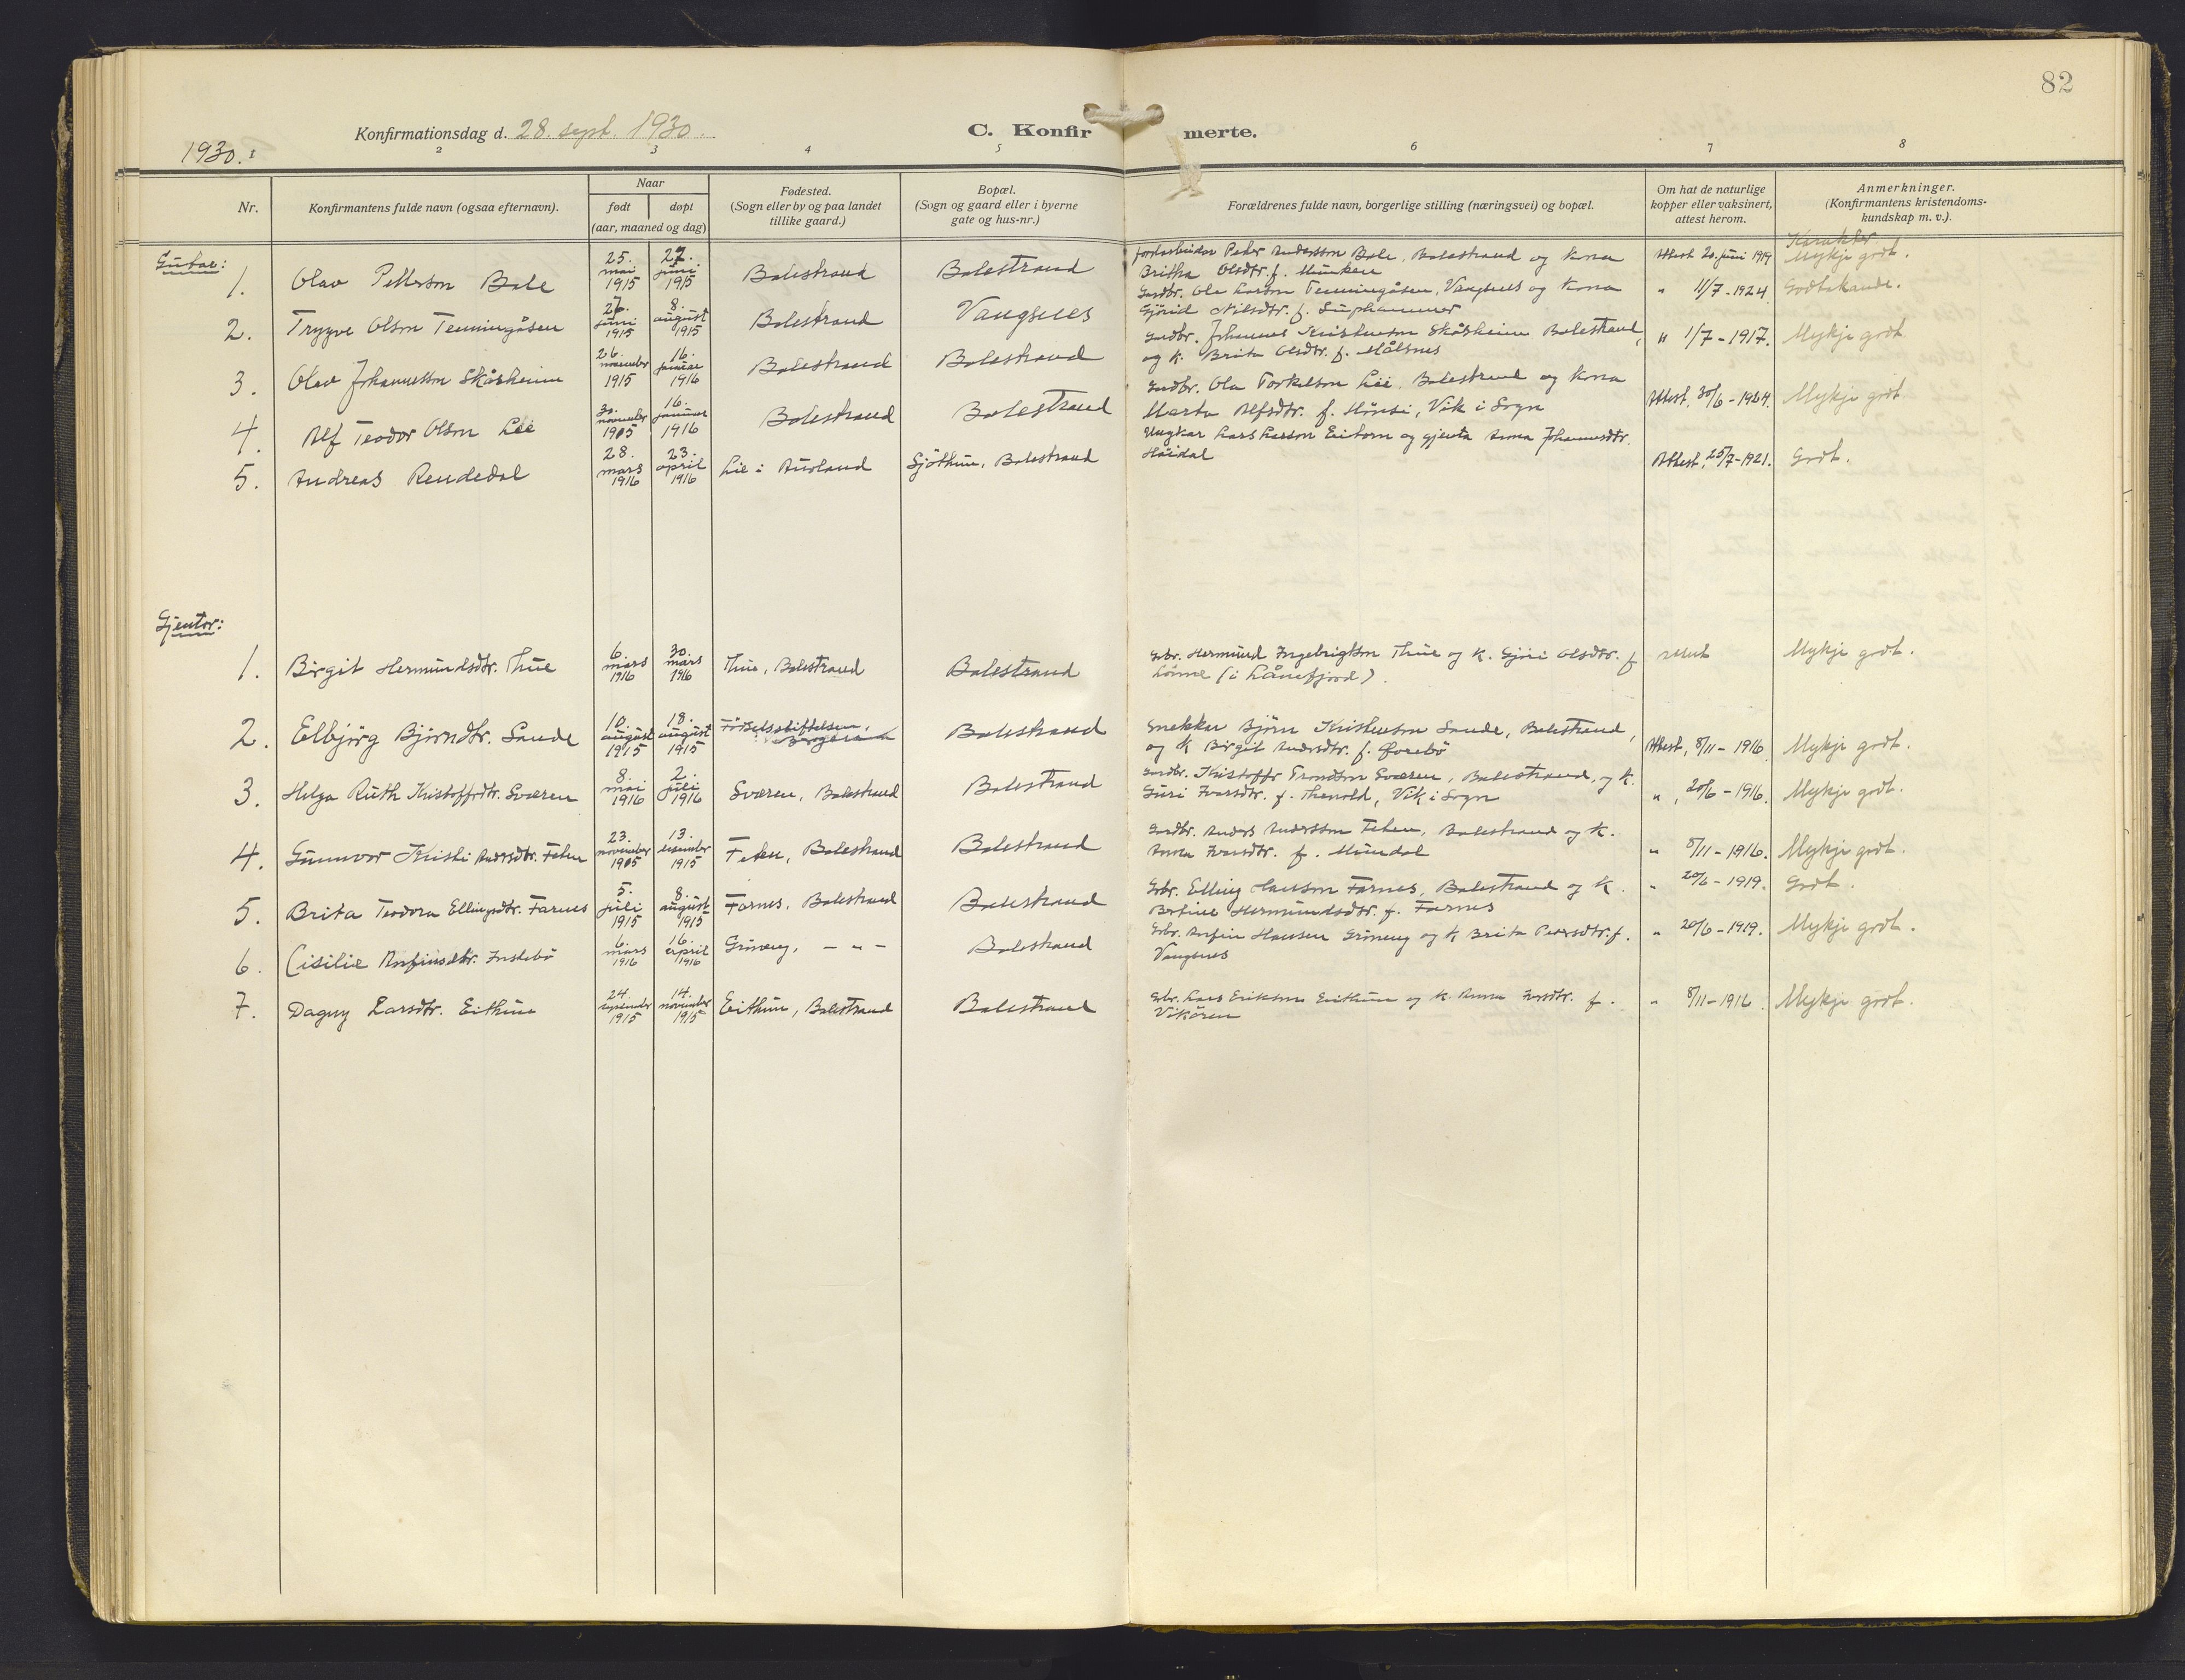 82
Konfirmationsdag d. 28. sept. 1930.
C. Konfirmerte.
1930.
1 2 3 4 5 6 7 8
Nr.
Konfirmantens fulde navn (ogsaa efternavn).
Naar
født
døpt
(aar, maaned og dag)
Fødested.
(Sogn eller by og paa landet
tillike gaard.)
Bopæl.
(Sogn og gaard eller i byerne
gate og hus-nr.)
Forældrenes fulde navn, borgerlige stilling (næringsvei) og bopæl.
Om hat de naturlige
kopper eller vaksinert,
attest herom.
Anmerkninger.
(Konfirmantens kristendoms-
kundskap m. v.).
Gutar:
Karakter
1. Olav Petterson Bale 25. mai 1915 27. juni 1915 Balestrand Balestrand Peder Andersson Bale, Balestrand og kona
Britha Olsdtr. f. Munken Attest 20. juni 1919 Mykje godt.
2. Tryggve Olson Tenningåsen 27. juni 1915 8. august 1915 Balestrand Vangsnes Gardbr. Ola Larson Tenningåsen, Vangsnes og kona
Gjórid Nilsdtr. f. " 11/7-1924. Godtakande.
3. Olav Johannesson Skåsheim 26. november 1915 16. januar 1916 Balestrand Balestrand Gardbr. Johannes Kristenson Skåsheim Balestrand,
og k. Brita Olsdtr. f. Målsnes " 1/7-1917. Mykje godt
4. Alf Teodor Olson Lee 30. november 1905 16. januar 1916 Balestrand Balestrand Gardbr. Ola Torkelson Lee, Balestrand og kona
Marta Alfsdtr. f. Hönsi, Vik i Sogn Attest. 30/6-1924. Mykje godt
5. Andreas Rendedal 28. mars 1916 23. april 1916 Lie i Aurland Sjöthun, Balestrand Ungkar Lars Larson Eitorn og gjenta Anna Johannesdtr.
Höidal Attest. 25/7-1921. Godt.
Gjentor:
1. Birgit Hermundsdtr. Thue 6. mars 1916 30. mars 1916 Thue, Balestrand Balestrand Gbr. Hermund Ingebrigtson Thue og k. Gjöri Olsdtr. f
Lönne (i Lånefjord). Attest Mykje godt.
2. Elbjörg Björndtr. Sande 10. august 1915 18. august 1915 Födselsstiftelsen, Bergen Balestrand Snekkar Björn Kristenson Sande, Balestrand,
og k Birgit Andersdtr. f. Forebö Attest, 8/11-1916 Mykje godt.
3. Helga Ruth Kristoffrdtr. Sværen 8. mai 1916 2. juli 1916 Sværen, Balestrand Balestrand Gardbr. Kristoffr Trondson Sværen, Balestrand, og k.
Guri Ivarsdtr. f. Thenold, Vik i Sogn ", 20/6-1916. Mykje godt.
4. Gunnvor Kristi Andersdtr. Feten 23. november 1905 13. desember 1915 Feten, Balestrand Balestrand Gardbr. Anders Andersson Feten, Balestrand og k.
Anna Ivarsdtr. f. Mundal " 8/11-1916. Mykje godt.
5. Brita Teodora Ellingsdtr. Farnes 5. juli 1915 8. august 1915 Farnes, Balestrand Balestrand Gbr. Elling Hansson Farnes, Balestrand og k.
Bertine Hermundsdtr. f. Farnes " 20/6-1919. Godt.
6. Cisilie Anfinsdtr. Instebö 6. mars 1916 16. april 1916 Gröneng, - " - Balestrand Gbr. Anfin Hansen Gröneng og k Brita Pedersdtr. f.
Vangsnes " 20/6-1919. Mykje godt.
7. Dagny Larsdtr. Eithun 24. september 1915 14. november 1915 Eithun, Balestrand Balestrand Gbr. Lars Erikson Eithun og k. Anna Ivarsdtr. f.
Vikören " 8/11-1916. Mykje godt.